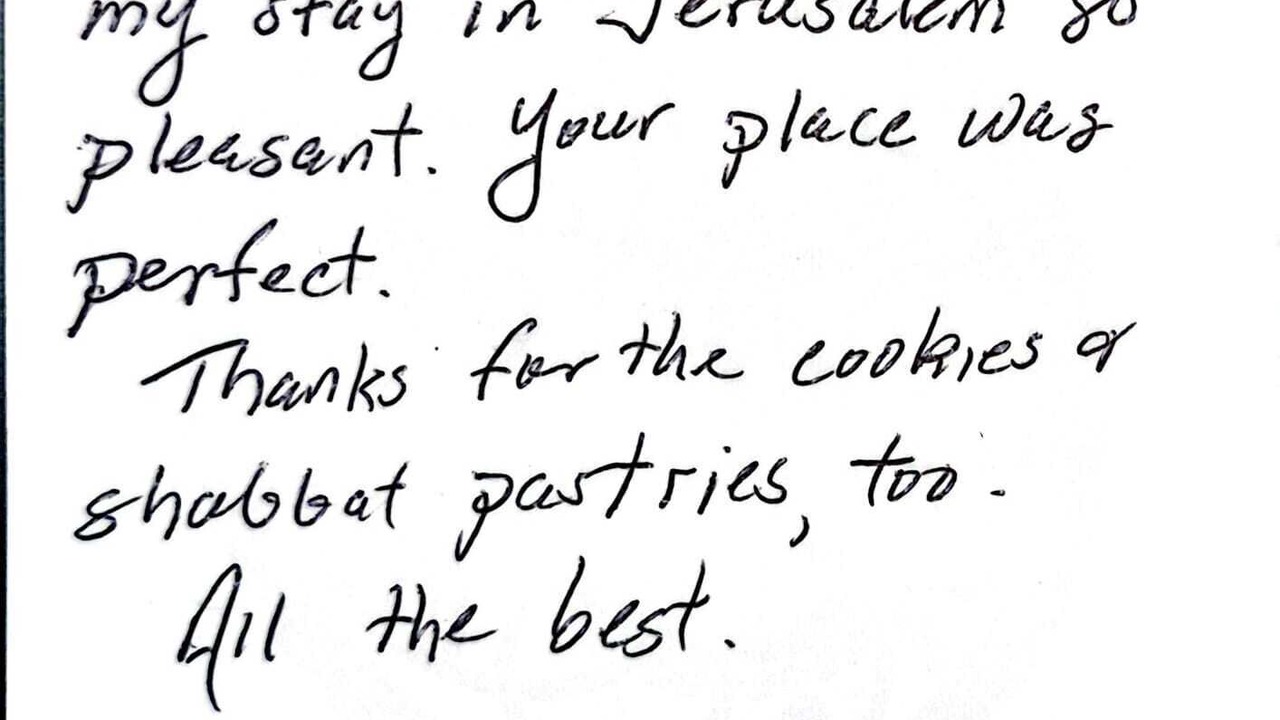 my stay in Jerusalem so
pleasant. Your place was
perfect.
Thanks for the cookies &
shabbat pastries, too.
All the best.